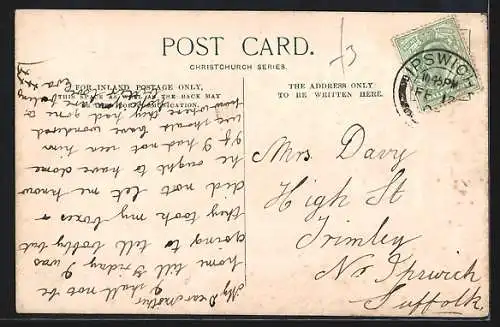 POST CARD.
CHRISTCHURCH SERIES.
FOR INLAND POSTAGE ONLY,
THIS SPACE AS WELL AS THE BACK MAY
COMMUNICATION.
THE ADDRESS ONLY
TO BE WRITTEN HERE.
IPSWICH
Mrs. Davy
High St
Trimley
Nr Ipswich
Suffolk
My Dear Mother
I shall not be
home till Friday I was
going to tell Bobby but
they took my boxes &
did not let me know
he ought to have done
if I had not seen him
we should have wondered
where they had gone to
Eva xx